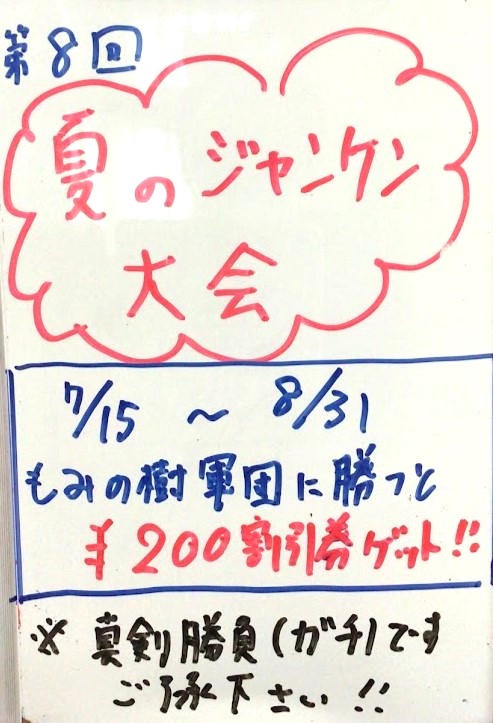 第8回
夏のジャンケン
大会
7/15 ~ 8/31
もみの樹軍団に勝つと
¥200割引券ゲット!!
※真剣勝負(ガチ)です
ご了承下さい!!